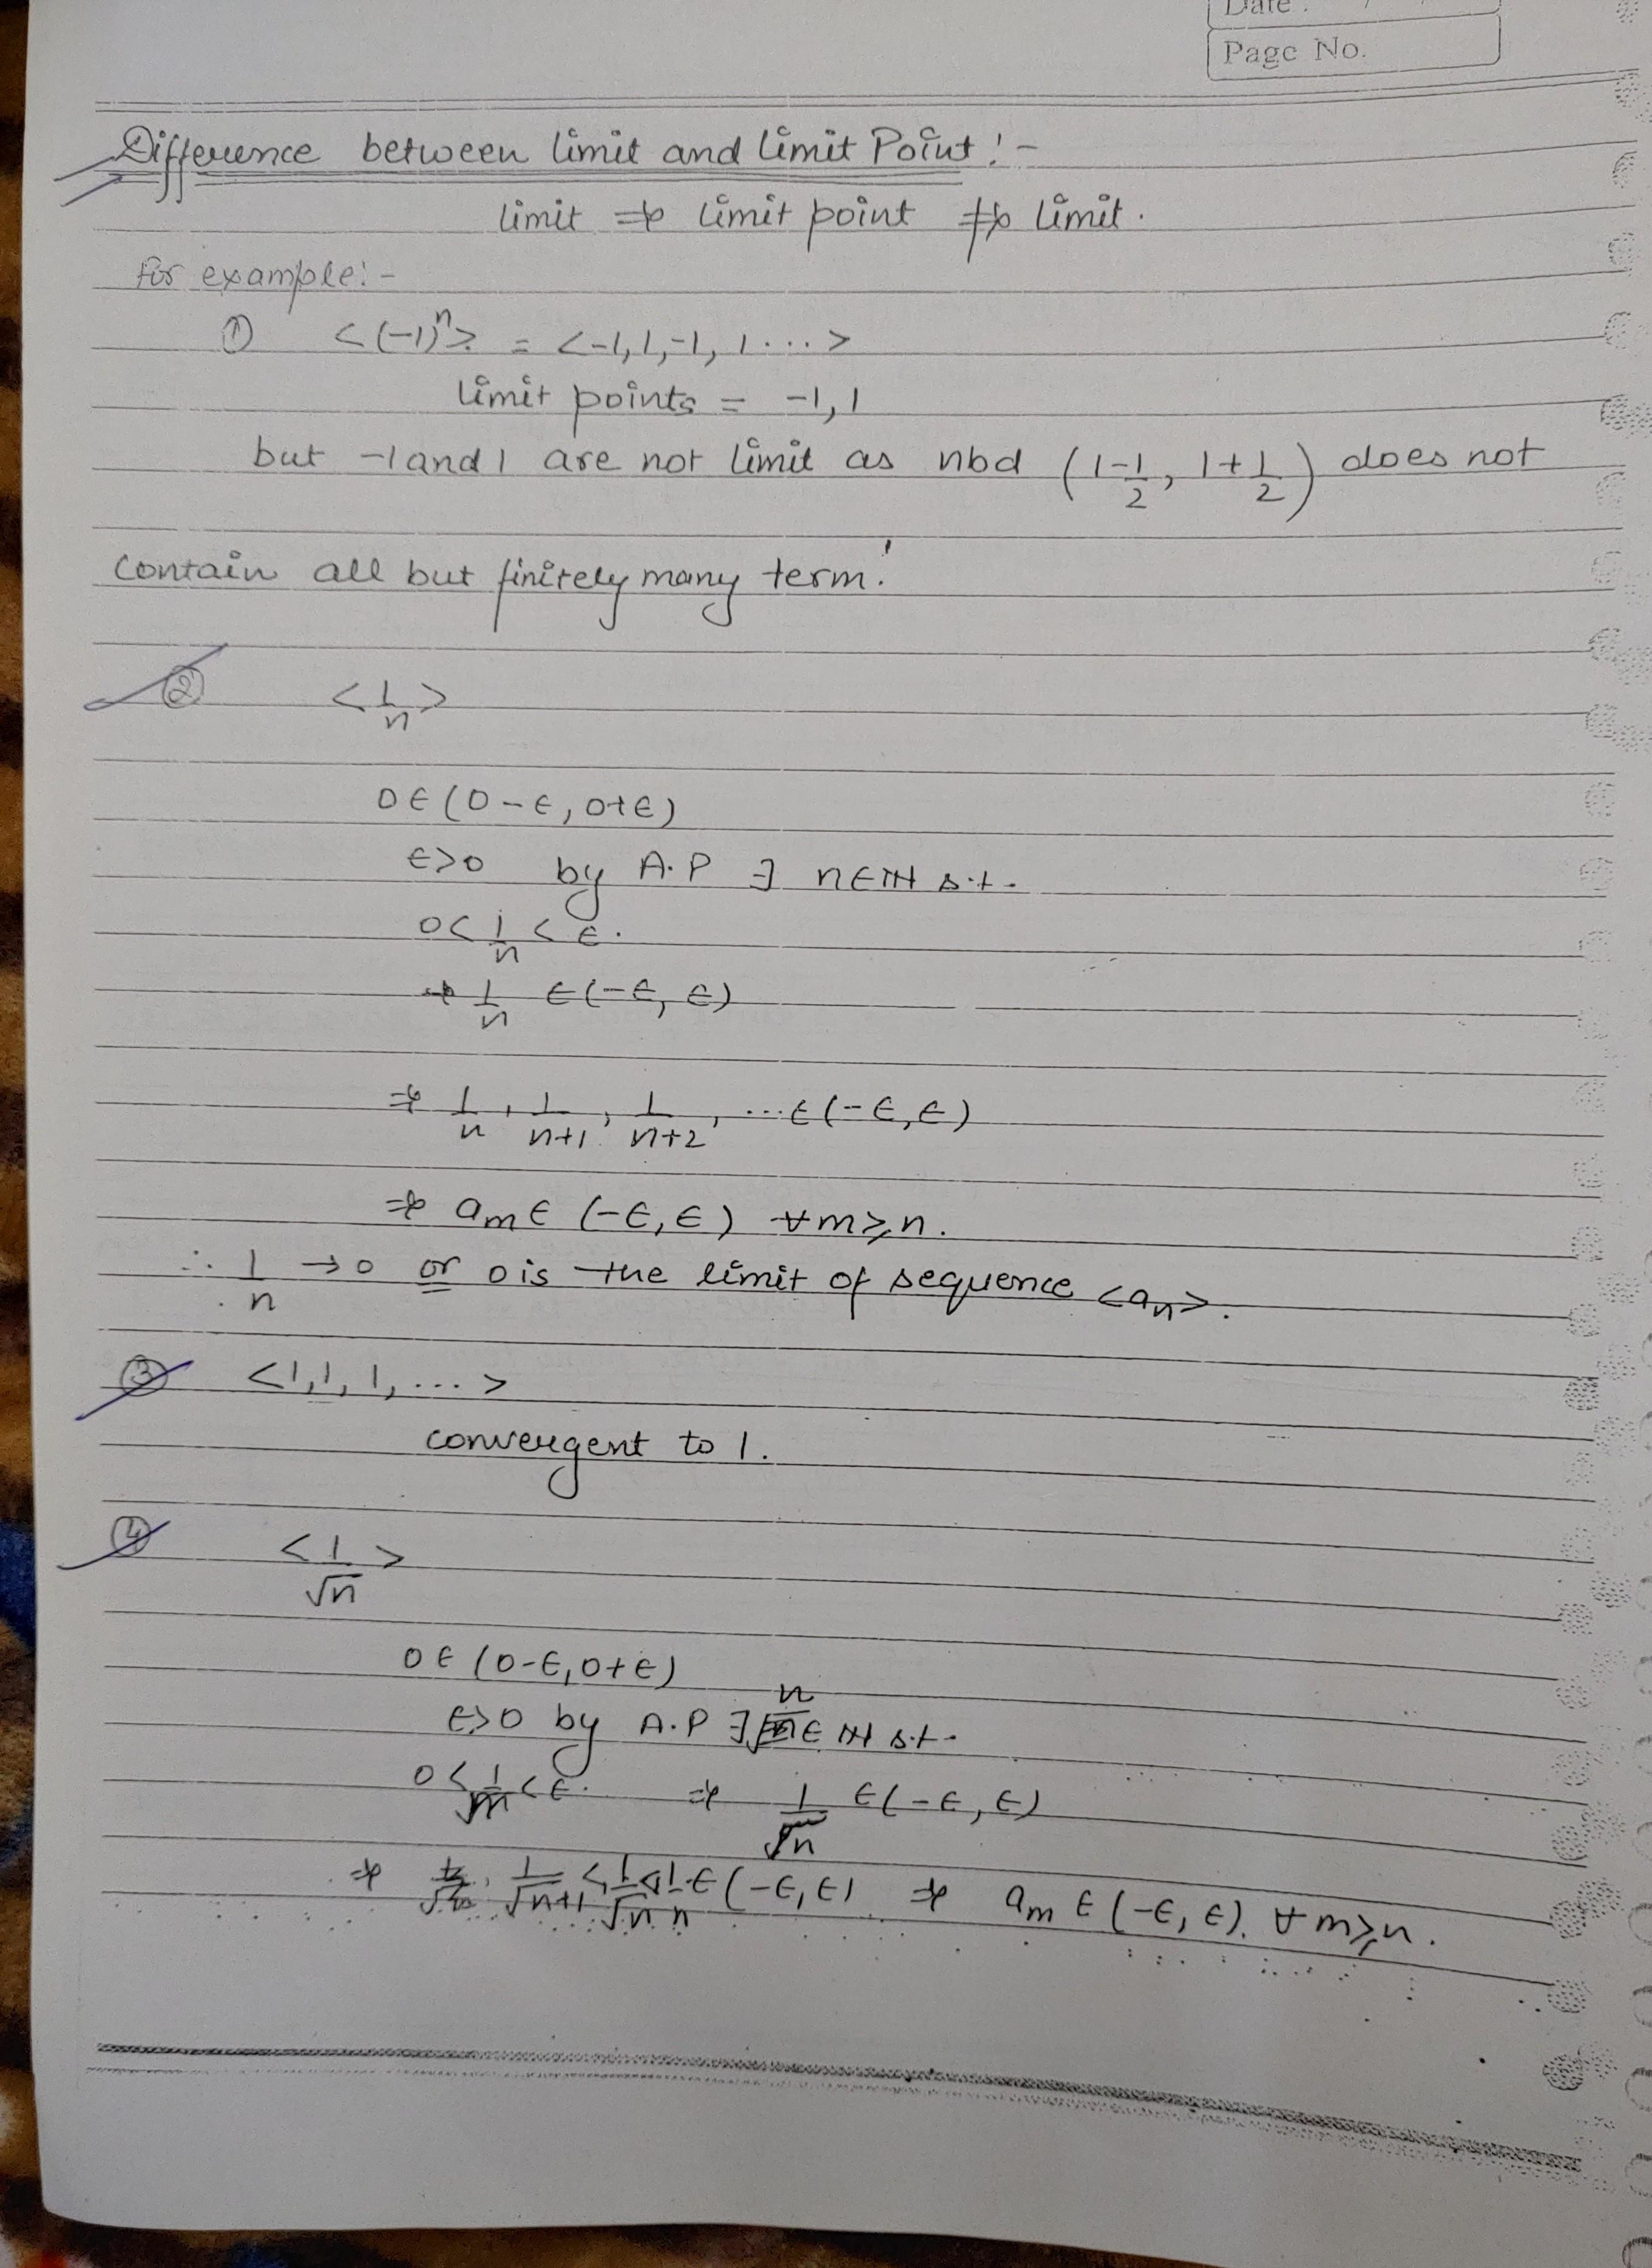 Date : / /
Page No.
Difference between limit and limit Point :-
limit ⇒ limit point ⇏ limit.
for example :-
① <(-1)ⁿ> = <-1, 1, -1, 1 ... >
limit points = -1, 1
but -1 and 1 are not limit as nbd (1-1/2, 1+1/2) does not
contain all but finitely many term.
② <1/n>
0 ∈ (0-ϵ, 0+ϵ)
ϵ>0 by A.P ∃ n∈ℕ s.t.
0 < 1/n < ϵ.
⇒ 1/n ∈ (-ϵ, ϵ)
⇒ 1/n, 1/n+1, 1/n+2, ... ∈ (-ϵ, ϵ)
⇒ aₘ ∈ (-ϵ, ϵ) ∀ m ≥ n.
∴ 1/n → 0 or 0 is the limit of sequence <aₙ>.
③ <1, 1, 1, ... >
convergent to 1.
④ <1/√n>
0 ∈ (0-ϵ, 0+ϵ)
ϵ>0 by A.P ∃ n ∈ ℕ s.t.
0 < 1/√n < ϵ. ⇒ 1/√n ∈ (-ϵ, ϵ)
⇒ 1/√n+1 < 1/√n < 1/n ∈ (-ϵ, ϵ) ⇒ aₘ ∈ (-ϵ, ϵ). ∀ m ≥ n.